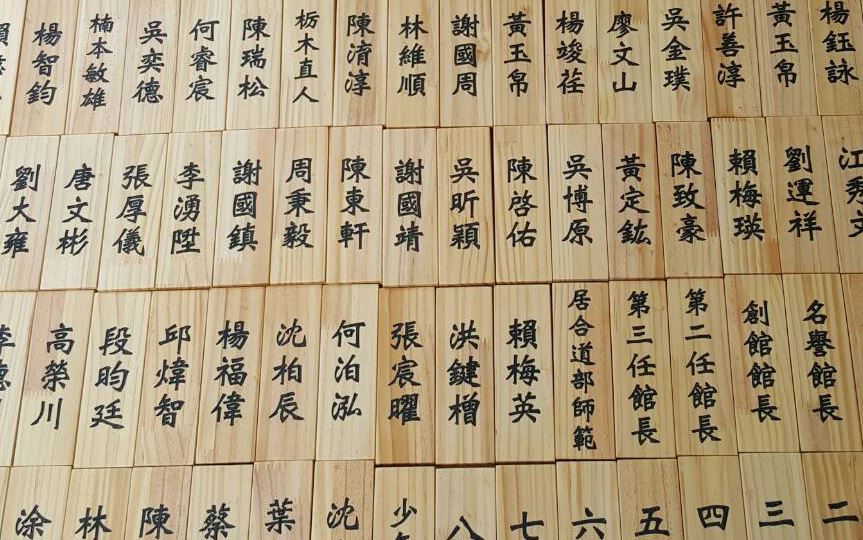 楊鈺詠
黃玉帛
許善淳
吳金璞
廖文山
楊竣荏
黃玉帛
謝國周
林維順
陳淯淳
栃木直人
陳瑞松
何睿宸
吳奕德
楠本敏雄
楊智鈞
江秀文
劉運祥
賴梅瑛
陳致豪
黃定鈜
吳博原
陳啓佑
吳昕穎
謝國靖
陳東軒
周秉毅
謝國鎮
李湧陞
張厚儀
唐文彬
劉大雍
名譽館長
創館館長
第二任館長
第三任館長
居合道部師範
賴梅英
洪鍵橧
張宸曜
何泊泓
沈柏辰
楊福偉
邱煒智
段昀廷
高榮川
李德
二
三
四
五
六
七
八
少
沈
葉
蔡
陳
林
涂